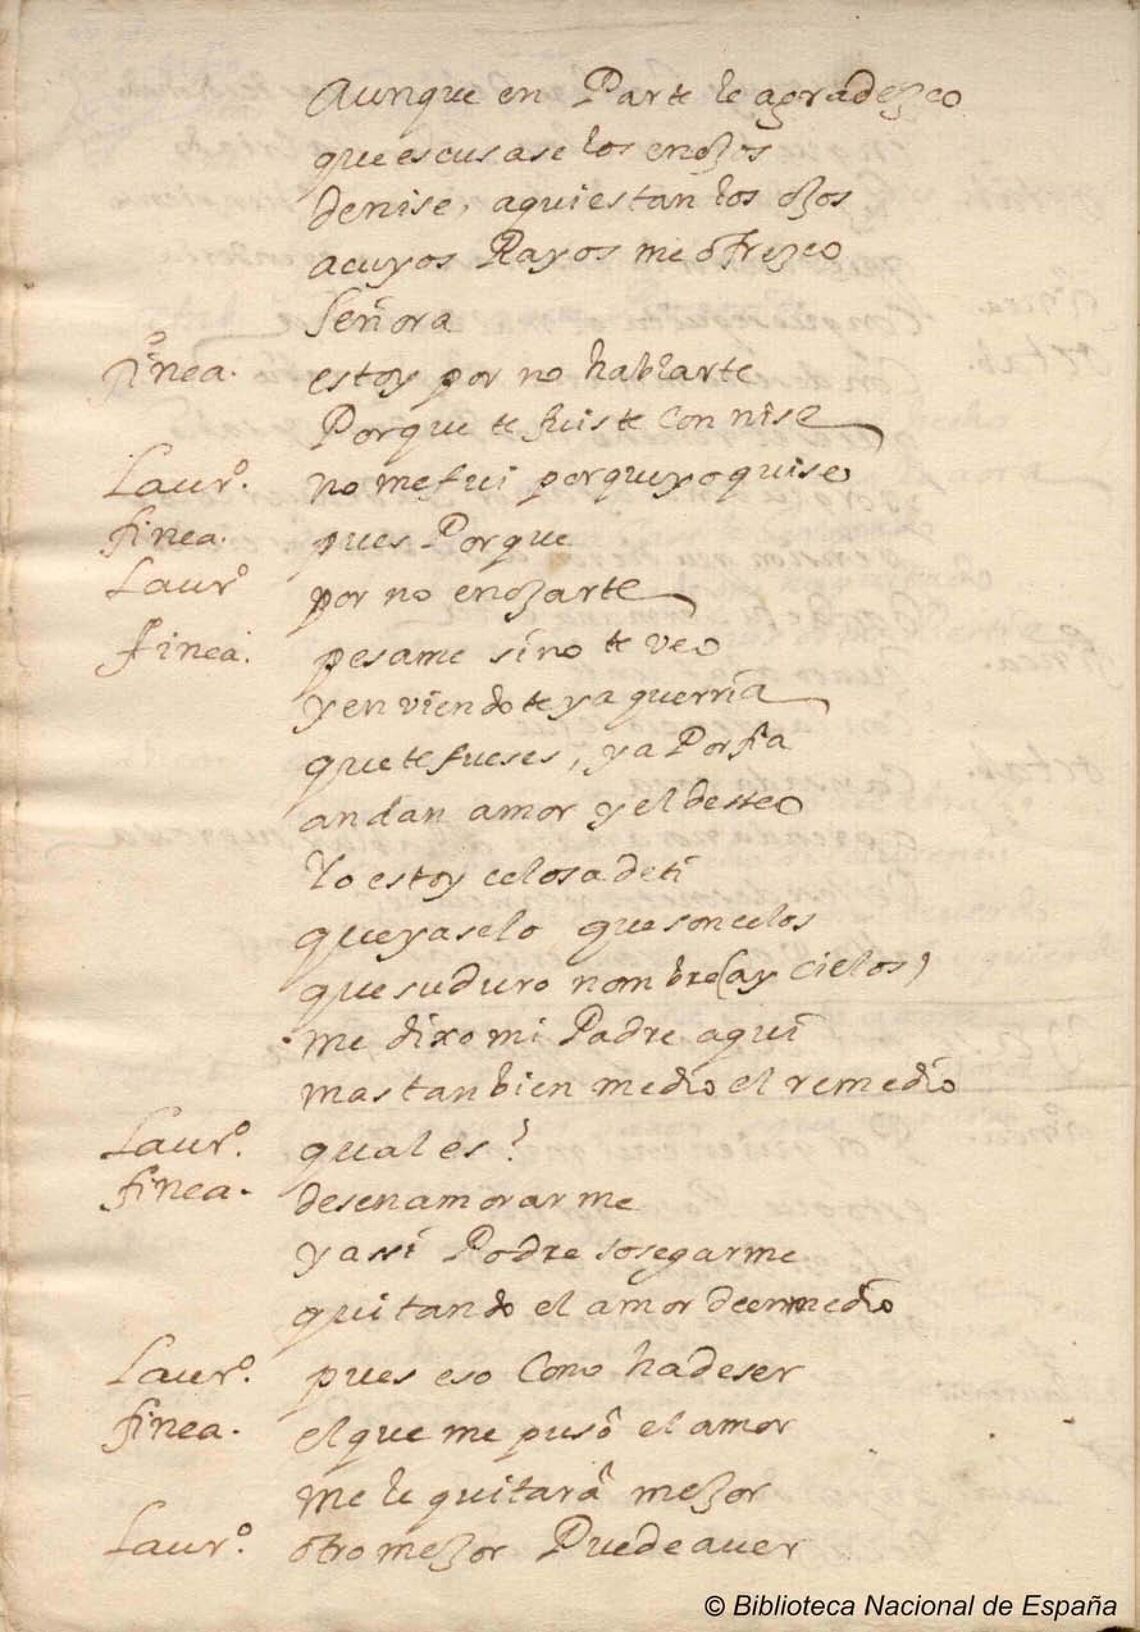 Aunque en Parte le agradezco
que escusase los enojos
denise, aqui estan los ojos
acuyos Rayos me ofrezco
Señora
finea. estoy por no hablarte
Porque te fuiste Con nise
Laur.º no me fui porque yo quise
finea. pues Porque
Laurº por no enojarte
finea. pesame sino te veo
y en viendote ya querria
que te fueses, y a Porfia
andan amor y el desseo
Yo estoy celosa de ti
que ya se lo que son celos
que su duro nombre (ay cielos)
me dixo mi Padre aqui
mas tanbien me dio el remedio
Laur.º qual es?
finea. desenamorarme
y assi Podre sosegarme
quitando el amor de enmedio
Laur.º pues eso Como ha de ser
finea. el que me puso el amor
me le quitara mejor
Laur.º otro mejor Puede auer
© Biblioteca Nacional de España